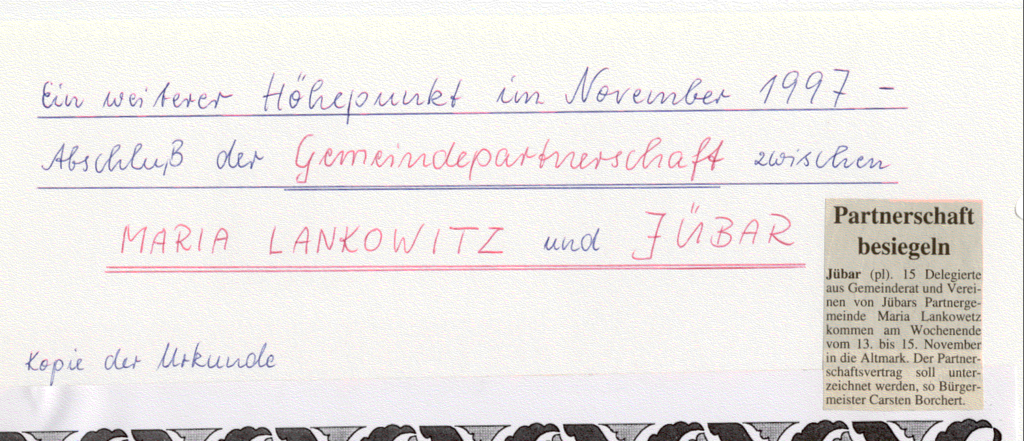 Ein weiterer Höhepunkt im November 1997 -
Abschluß der Gemeindepartnerschaft zwischen
MARIA LANKOWITZ und JÜBAR
Partnerschaft
besiegeln
Jübar (pl). 15 Delegierte
aus Gemeinderat und Verei-
nen von Jübars Partnerge-
meinde Maria Lankowetz
kommen am Wochenende
vom 13. bis 15. November
in die Altmark. Der Partner-
schaftsvertrag soll unter-
zeichnet werden, so Bürger-
meister Carsten Borchert.
Kopie der Urkunde